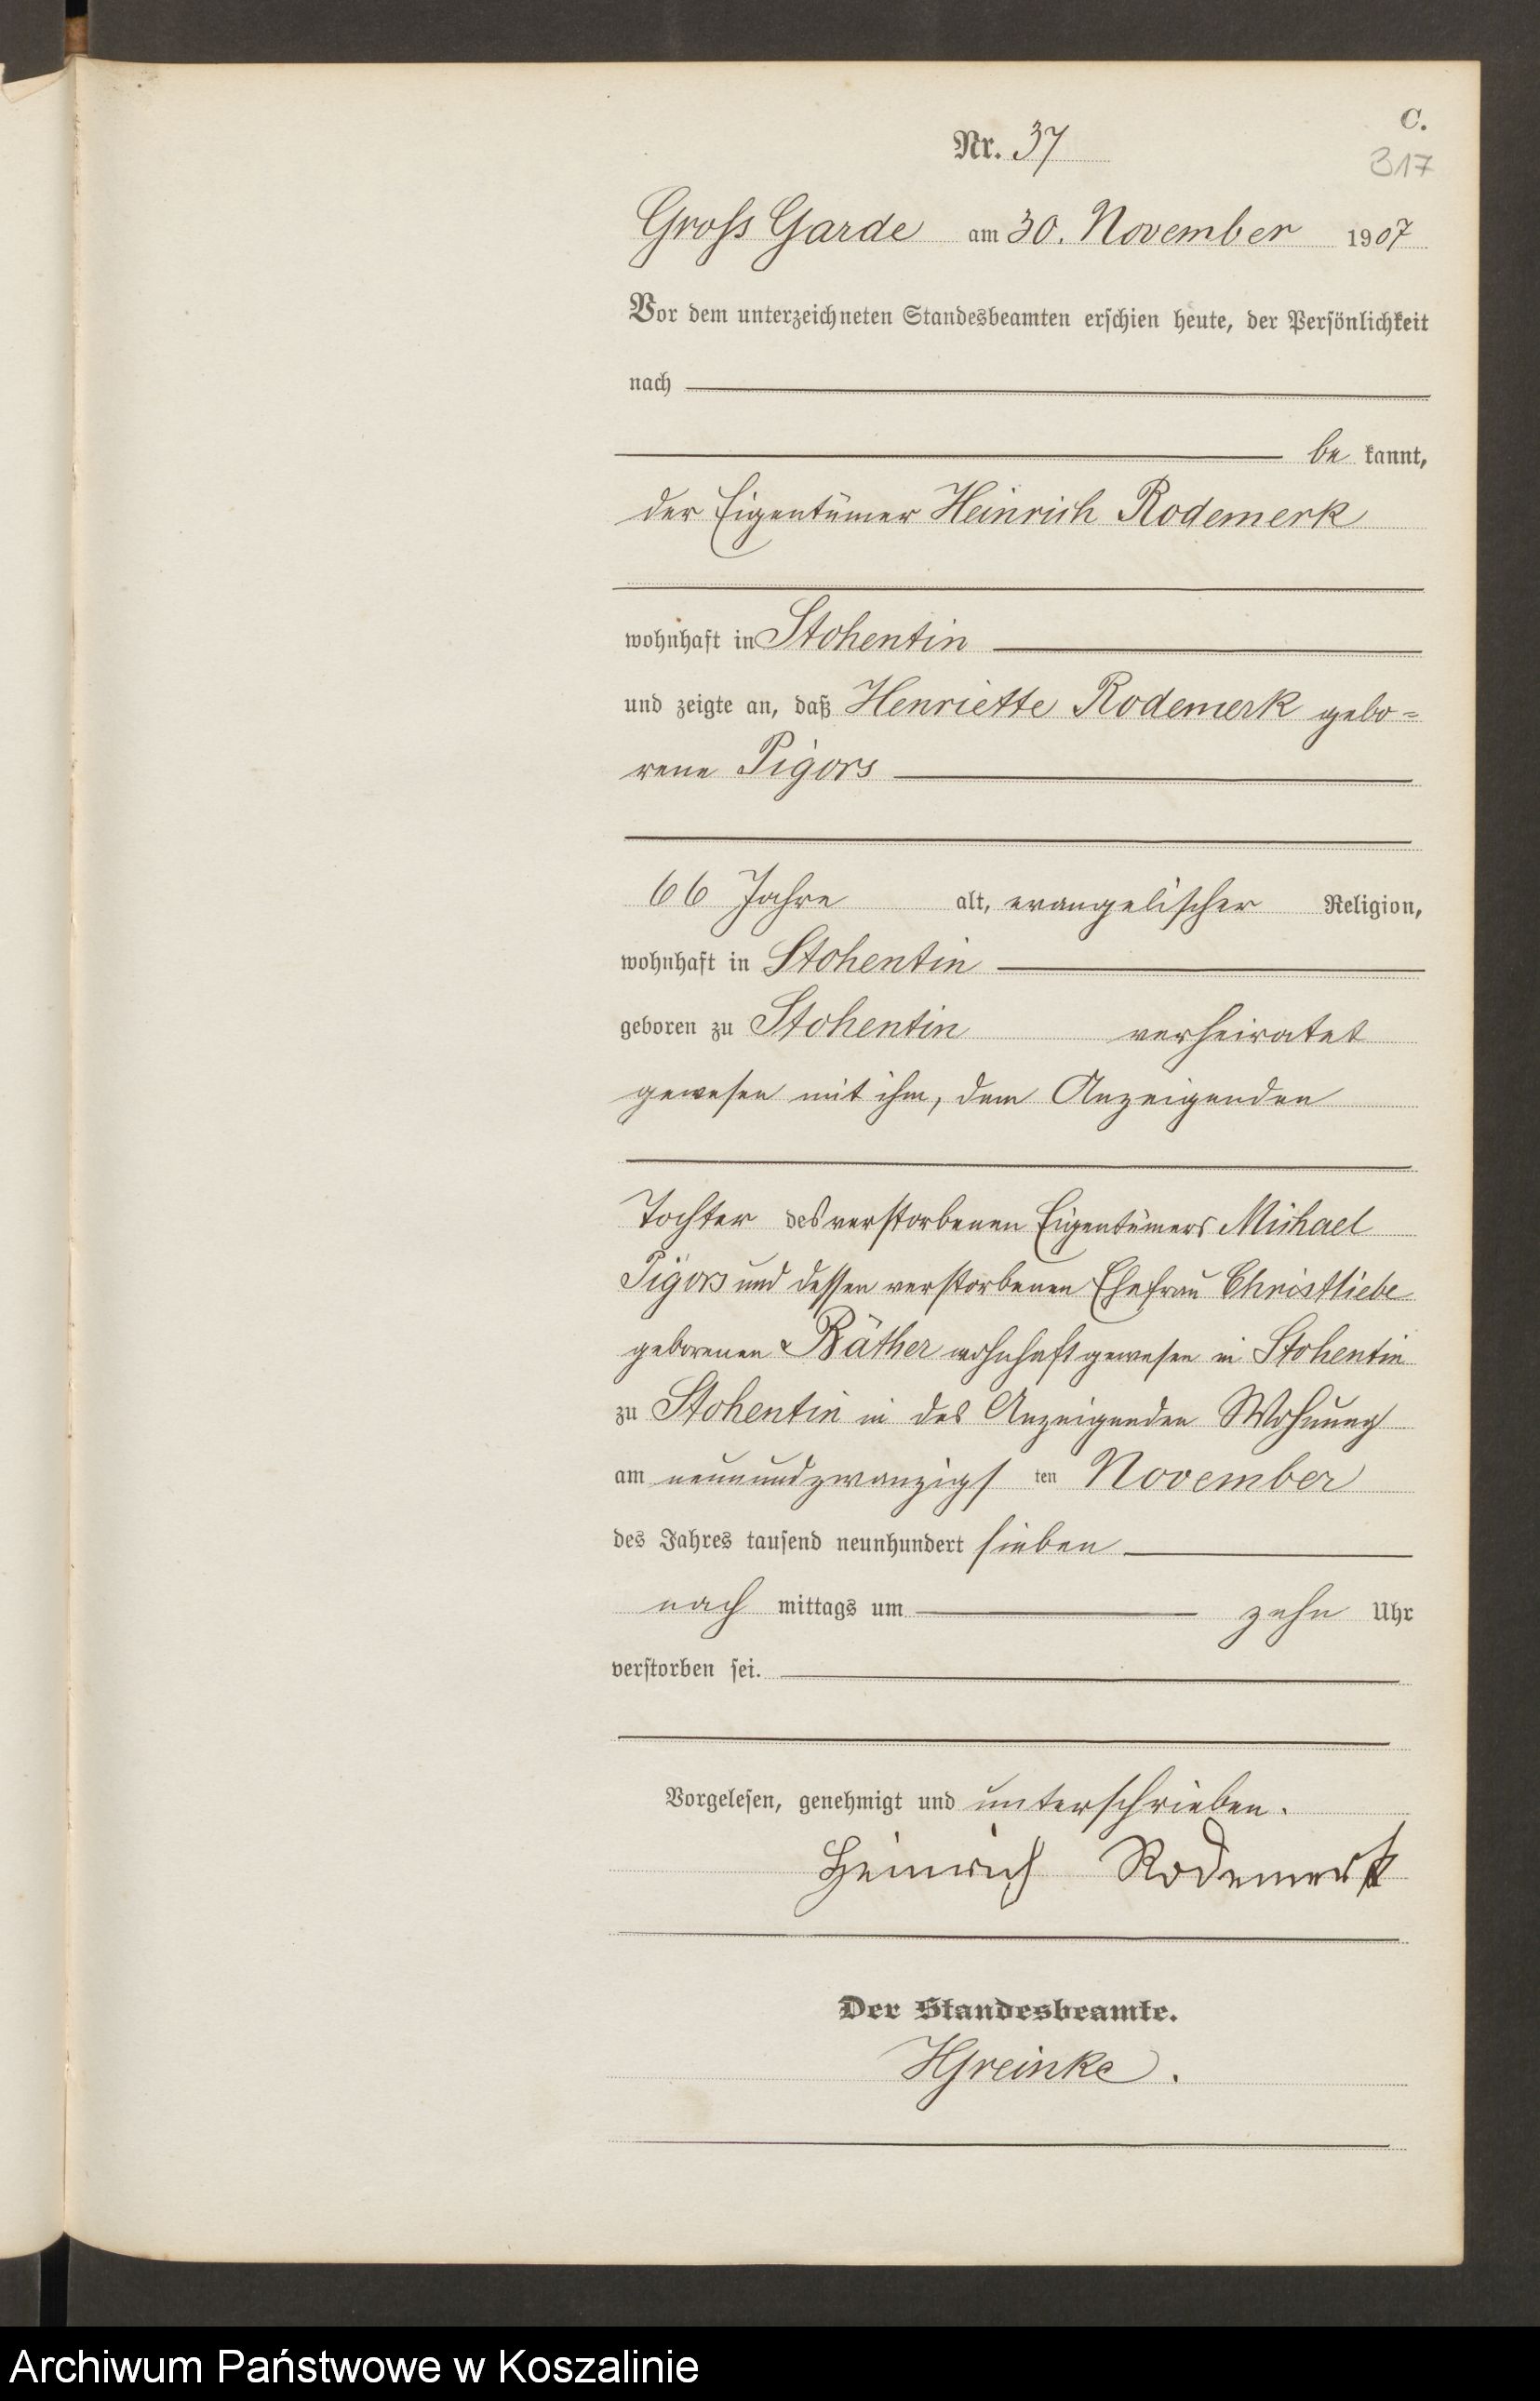 C.
Nr. 37
317
Gross Garde am 30. November 1907
Vor dem unterzeichneten Standesbeamten erschien heute, der Persönlichkeit
nach
be kannt,
der Eigentümer Heinrich Rodemerk
wohnhaft in Stohentin
und zeigte an, daß Henriette Rodemerk gebo=
rene Pigors
66 Jahre alt, evangelischer Religion,
wohnhaft in Stohentin
geboren zu Stohentin verheiratet
gewesen mit ihm, dem Anzeigenden
Tochter des verstorbenen Eigentümers Michael
Pigors und dessen verstorbenen Ehefrau Christliebe
geborenen Räther wohnhaft gewesen in Stohentin
zu Stohentin in des Anzeigenden Wohnung
am neunundzwanzigs ten November
des Jahres tausend neunhundert sieben
nach mittags um zehn Uhr
verstorben sei.
Vorgelesen, genehmigt und unterschrieben.
Heinrich Rodemerk
Der Standesbeamte.
HGreinke.
Archiwum Państwowe w Koszalinie